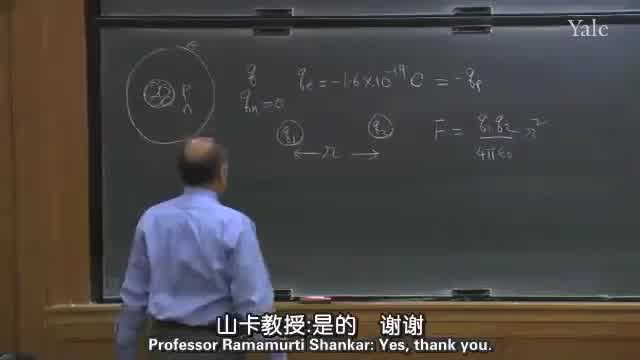 Yale
e
P
n
q qₑ = -1.6×10⁻¹⁹ C = -qₚ
qₙ = 0
q₁ q₂
← r →
F = q₁ q₂ / 4πε₀ r²
山卡教授:是的 谢谢
Professor Ramamurti Shankar: Yes, thank you.